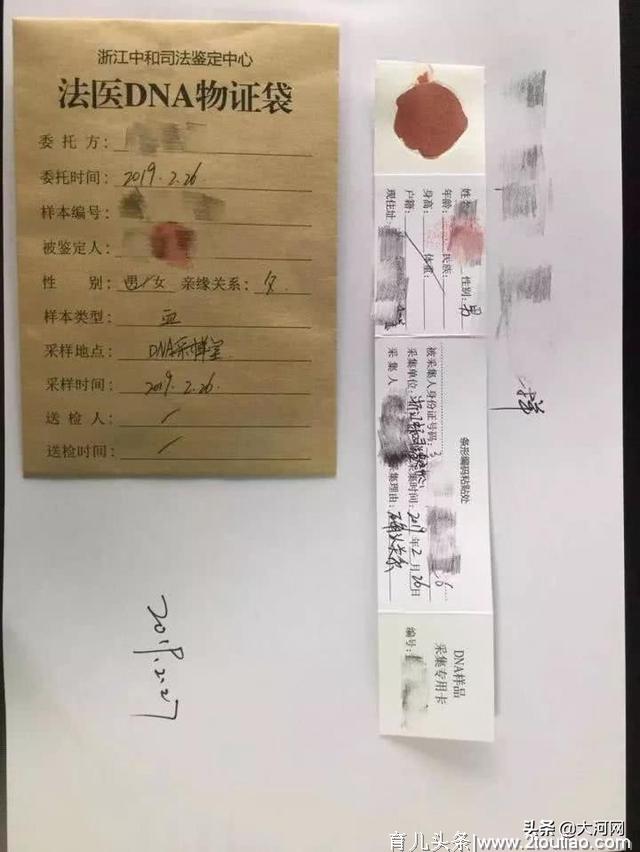 浙江中和司法鉴定中心
法医DNA物证袋
委 托 方:
委托时间: 2019.2.26
样本编号:
被鉴定人:
性 别: 男/女 亲缘关系: 父
样本类型: 血
采样地点: DNA采样室
采样时间: 2019.2.26
送 检 人: /
送检时间: /
性别: 男
年龄: 民族:
身高: 体重:
户籍:
现住址:
条形编码粘贴处
被采集人身份证号码: 3
采集单位: 采集时间: 2019年2月26日
采 集 人 采集理由: 确认关系
DNA样品
采集专用卡
编号:
2019.2.27
头条 @大河网
育儿头条 www.21ouliao.com